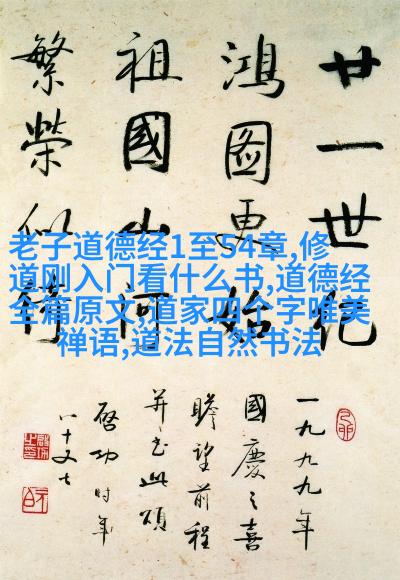 廿一世纪
鸿圖更始
祖國山河
繁榮似
老子道德经1至54章,修
道刚入门看什么书,道德经
全篇原文,道家四个字唯美
禅语,道法自然书法
一九九九年
國慶之喜
瞻望前程
并书此頌
啓功时年
八十又七